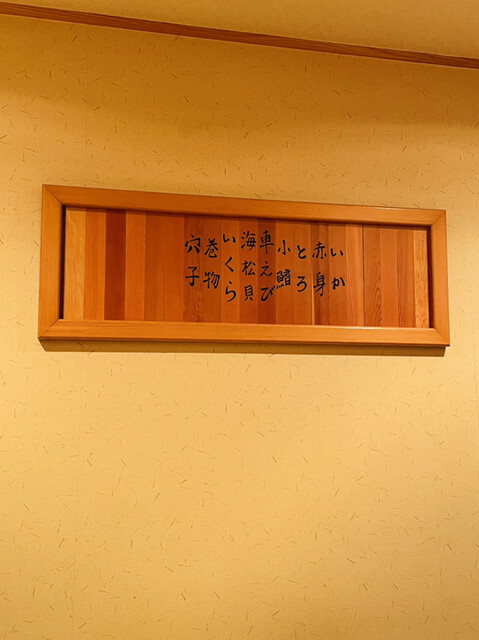 いか
赤身
とろ
小鰭
車えび
海松貝
いくら
巻物
穴子